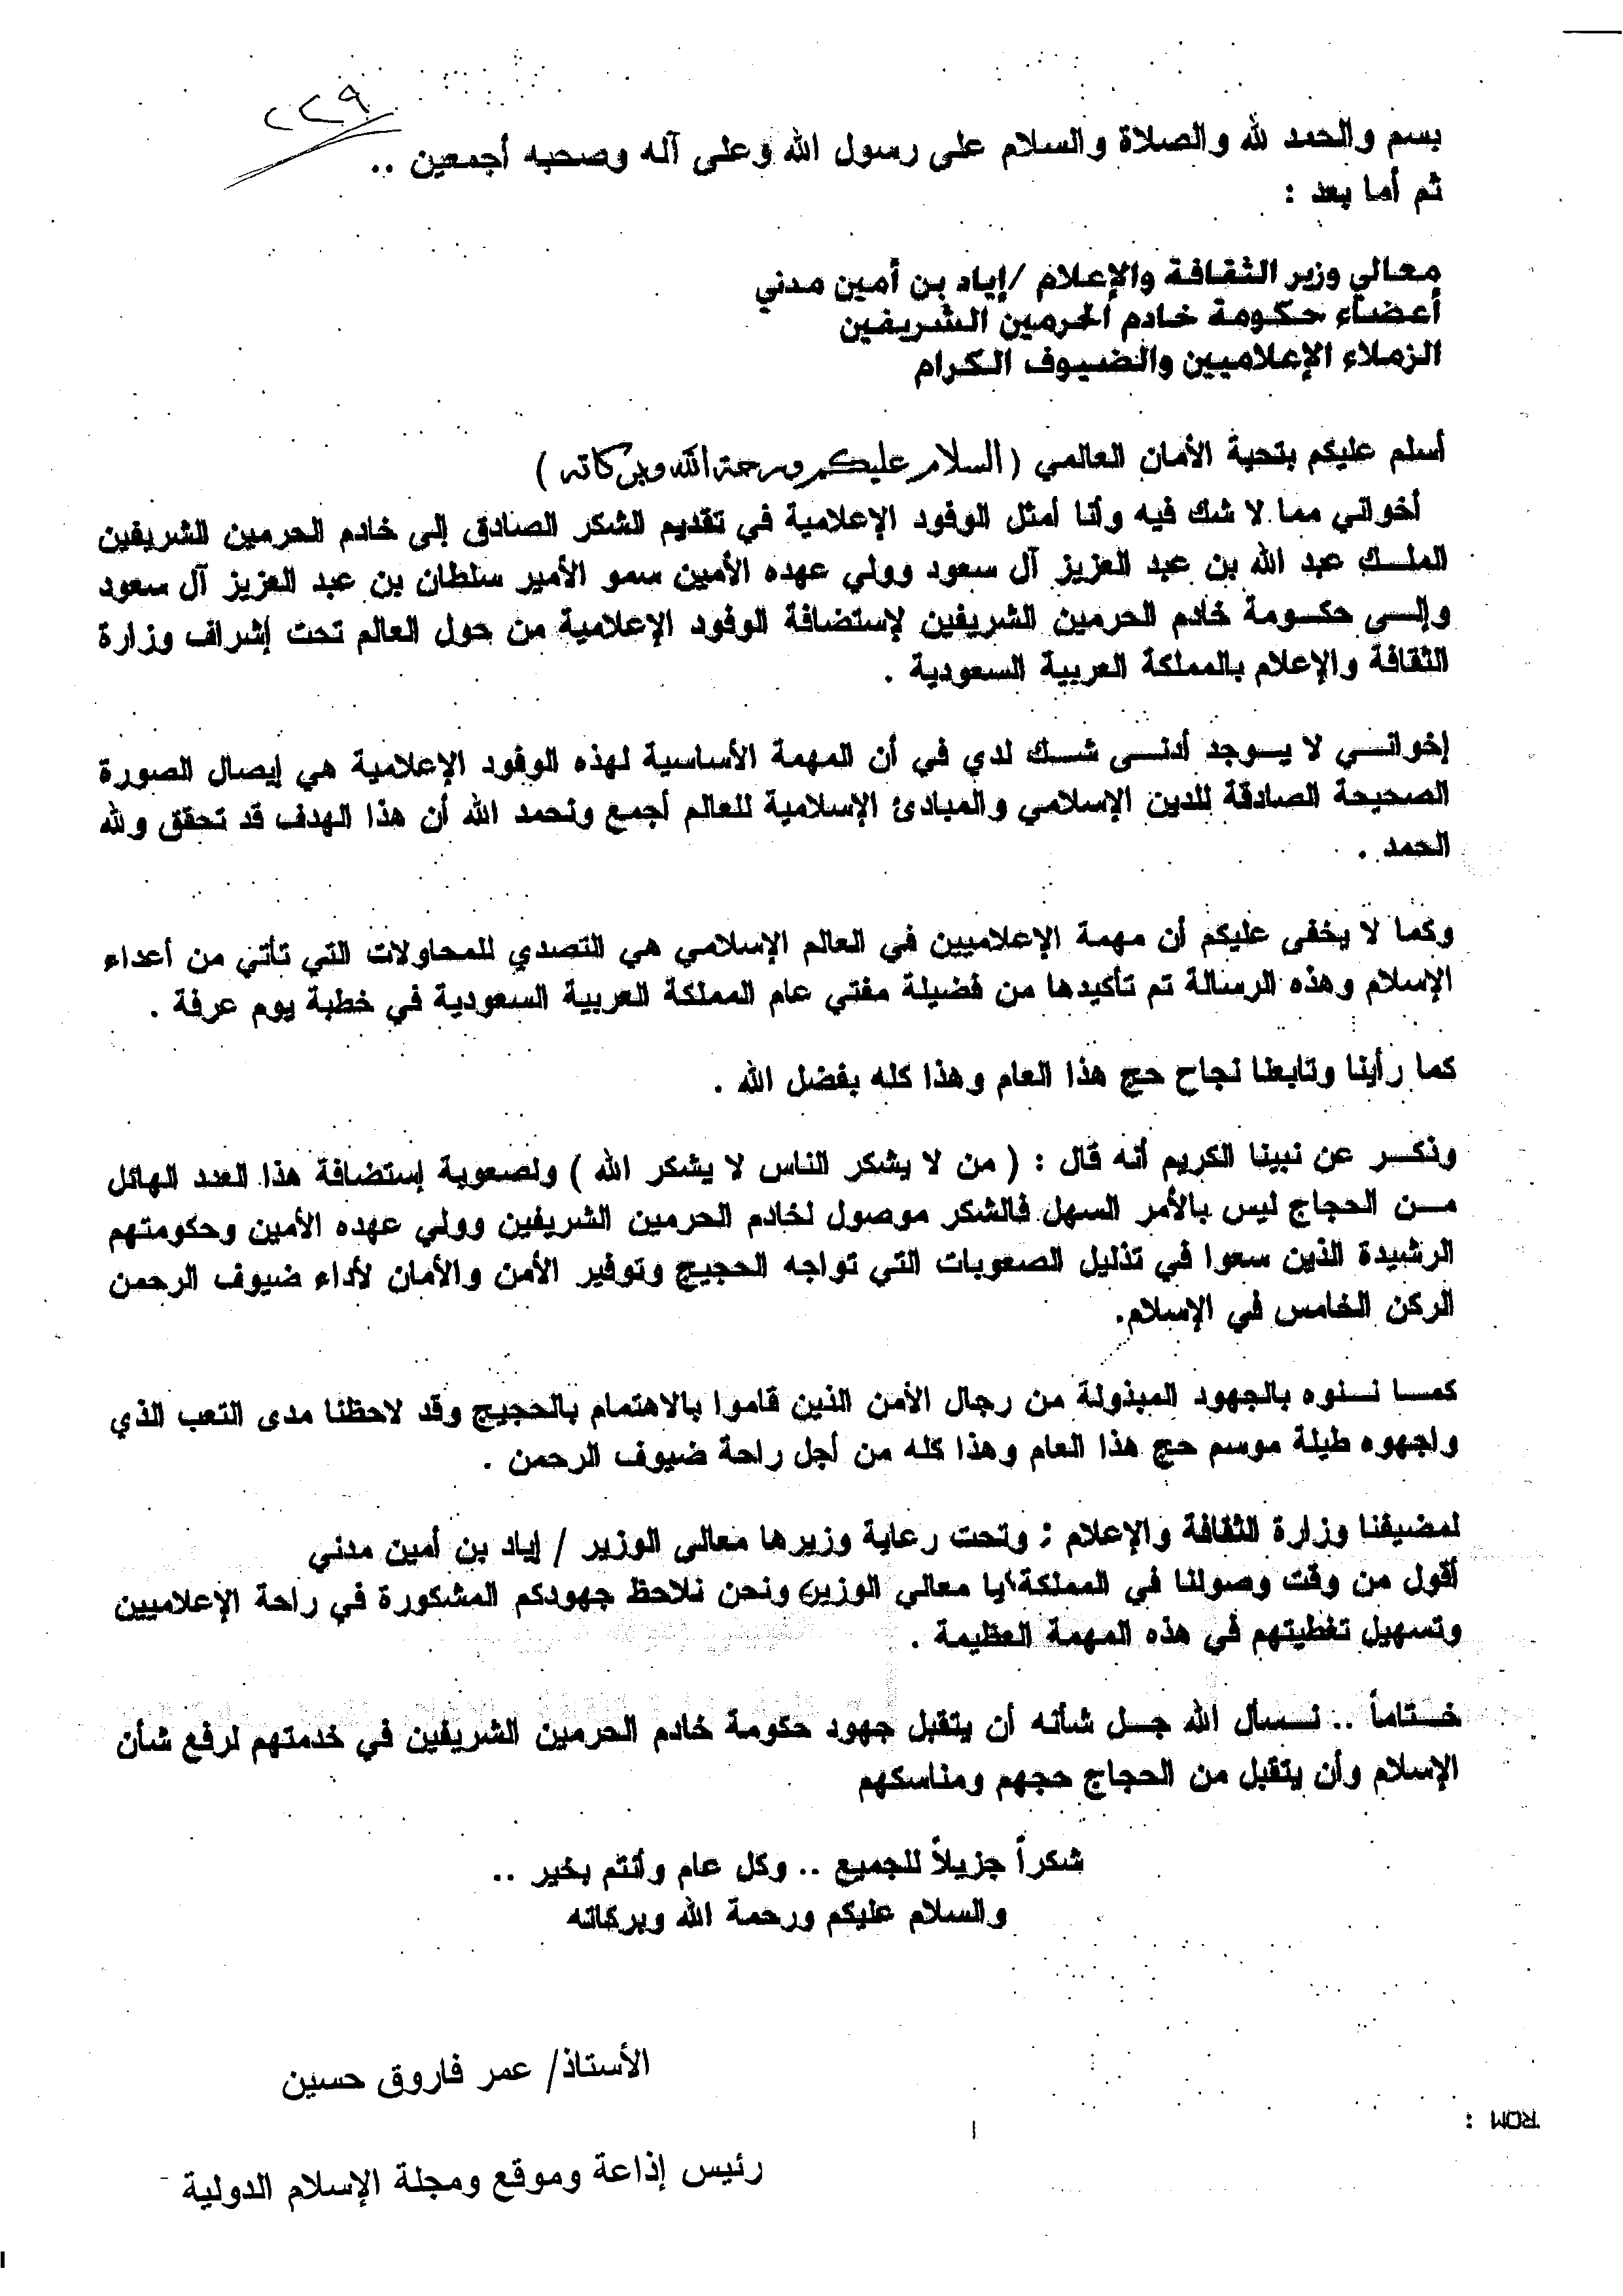 ٢٢٩
بسم والحمد لله والصلاة والسلام على رسول الله وعلى آله وصحبه أجمعين ..
ثم أما بعد :
معالي وزير الثقافة والإعلام /إياد بن أمين مدني
أعضاء حكومة خادم الحرمين الشريفين
الزملاء الإعلاميين والضيوف الكرام
أسلم عليكم بتحية الأمان العالمي ( السلام عليكم ورحمة الله وبركاته )
أخواني مما لا شك فيه وأنا أمثل الوفود الإعلامية في تقديم الشكر الصادق إلى خادم الحرمين الشريفين
الملك عبد الله بن عبد العزيز آل سعود وولي عهده الأمين سمو الأمير سلطان بن عبد العزيز آل سعود
وإلى حكومة خادم الحرمين الشريفين لإستضافة الوفود الإعلامية من حول العالم تحت إشراف وزارة
الثقافة والإعلام بالمملكة العربية السعودية .
إخواني لا يوجد أدنى شك لدي في أن المهمة الأساسية لهذه الوفود الإعلامية هي إيصال الصورة
الصحيحة الصادقة للدين الإسلامي والمبادئ الإسلامية للعالم أجمع ونحمد الله أن هذا الهدف قد تحقق ولله
الحمد .
وكما لا يخفى عليكم أن مهمة الإعلاميين في العالم الإسلامي هي التصدي للمحاولات التي تأتي من أعداء
الإسلام وهذه الرسالة تم تأكيدها من فضيلة مفتي عام المملكة العربية السعودية في خطبة يوم عرفة .
كما رأينا وتابعنا نجاح حج هذا العام وهذا كله بفضل الله .
ونكر عن نبينا الكريم أنه قال : ( من لا يشكر الناس لا يشكر الله ) ولصعوبة إستضافة هذا العدد الهائل
من الحجاج ليس بالأمر السهل فالشكر موصول لخادم الحرمين الشريفين وولي عهده الأمين وحكومتهم
الرشيدة الذين سعوا في تذليل الصعوبات التي تواجه الحجيج وتوفير الأمن والأمان لأداء ضيوف الرحمن
الركن الخامس في الإسلام.
كما ننوه بالجهود المبذولة من رجال الأمن الذين قاموا بالاهتمام بالحجيج وقد لاحظنا مدى التعب الذي
واجهوه طيلة موسم حج هذا العام وهذا كله من أجل راحة ضيوف الرحمن .
لمضيفنا وزارة الثقافة والإعلام : وتحت رعاية وزيرها معالى الوزير / إياد بن أمين مدني
أقول من وقت وصولنا في المملكة (يا معالي الوزير) ونحن نلاحظ جهودكم المشكورة في راحة الإعلاميين
وتسهيل تغطيتهم في هذه المهمة العظيمة .
ختاماً .. نسأل الله جل شأنه أن يتقبل جهود حكومة خادم الحرمين الشريفين في خدمتهم لرفع شأن
الإسلام وأن يتقبل من الحجاج حجهم ومناسكهم
شكراً جزيلاً للجميع .. وكل عام وأنتم بخير ..
والسلام عليكم ورحمة الله وبركاته
الأستاذ/ عمر فاروق حسين
ROM :
رئيس إذاعة وموقع ومجلة الإسلام الدولية